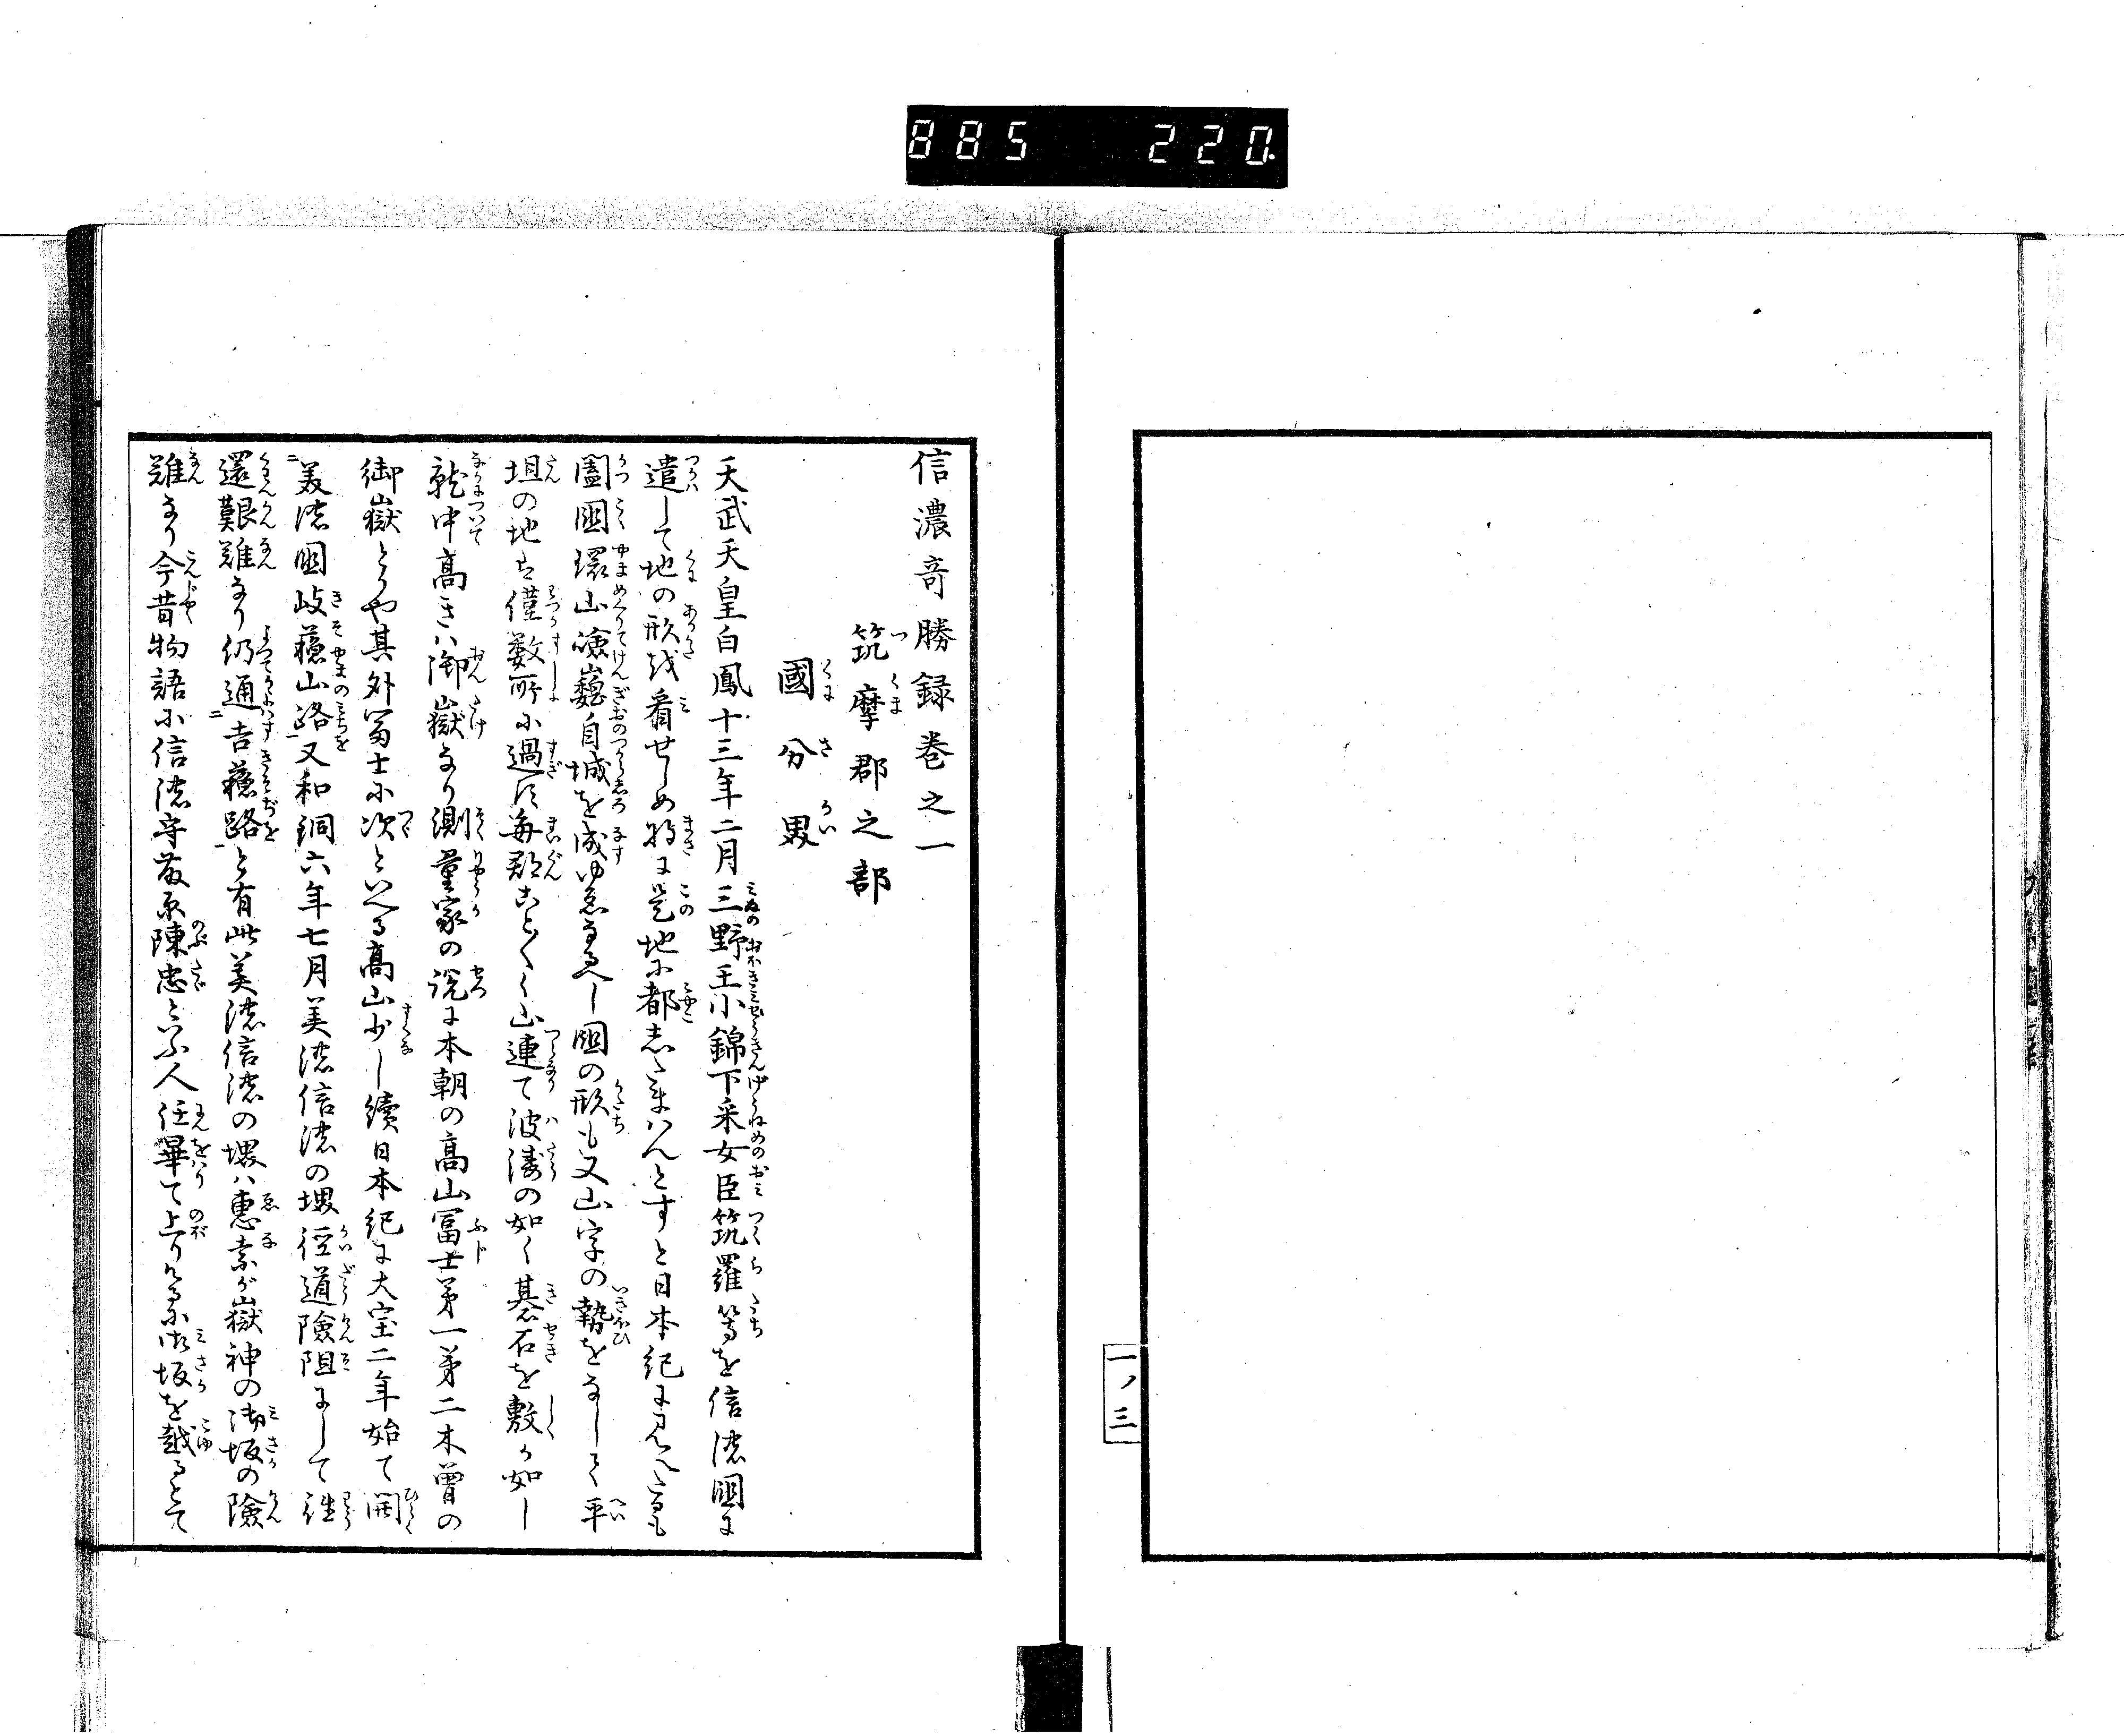 885 220
信濃奇勝録巻之一
筑摩郡之部
國分界
天武天皇白鳳十三年二月三野王小錦下采女臣筑羅等を信濃国に
遣して地の形を看せしめ将に是地に都したまはんとすと日本紀に見えたるも
闔国環山嶮巍自城を成ゆゑなるべし国の形も又山字の勢をなして平
坦の地は僅数所に過ぎず毎郡ことごとく山連て波濤の如く碁石を敷が如し
就中高きハ御嶽なり測量家の説に本朝の高山冨士第一第二木曽の
御嶽とかや其外冨士に次といへる高山少し續日本紀に大宝二年始て開
美濃国岐蘓山路又和銅六年七月美濃信濃の堺径道險阻にして往
還艱難なり仍通吉蘓路と有此美濃信濃の堺ハ恵奈が嶽神の御坂の險
難なり今昔物語に信濃守藤原陳忠といふ人任畢て上りけるに御坂を越るとて
一ノ三